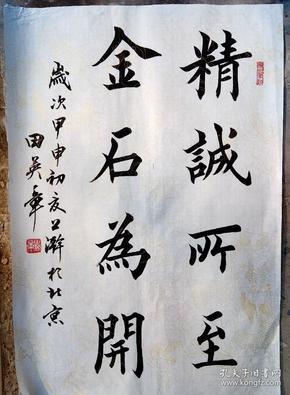 精誠所至
金石為開
歲次甲申初夏上澣於北京
田英章
孔夫子旧书网